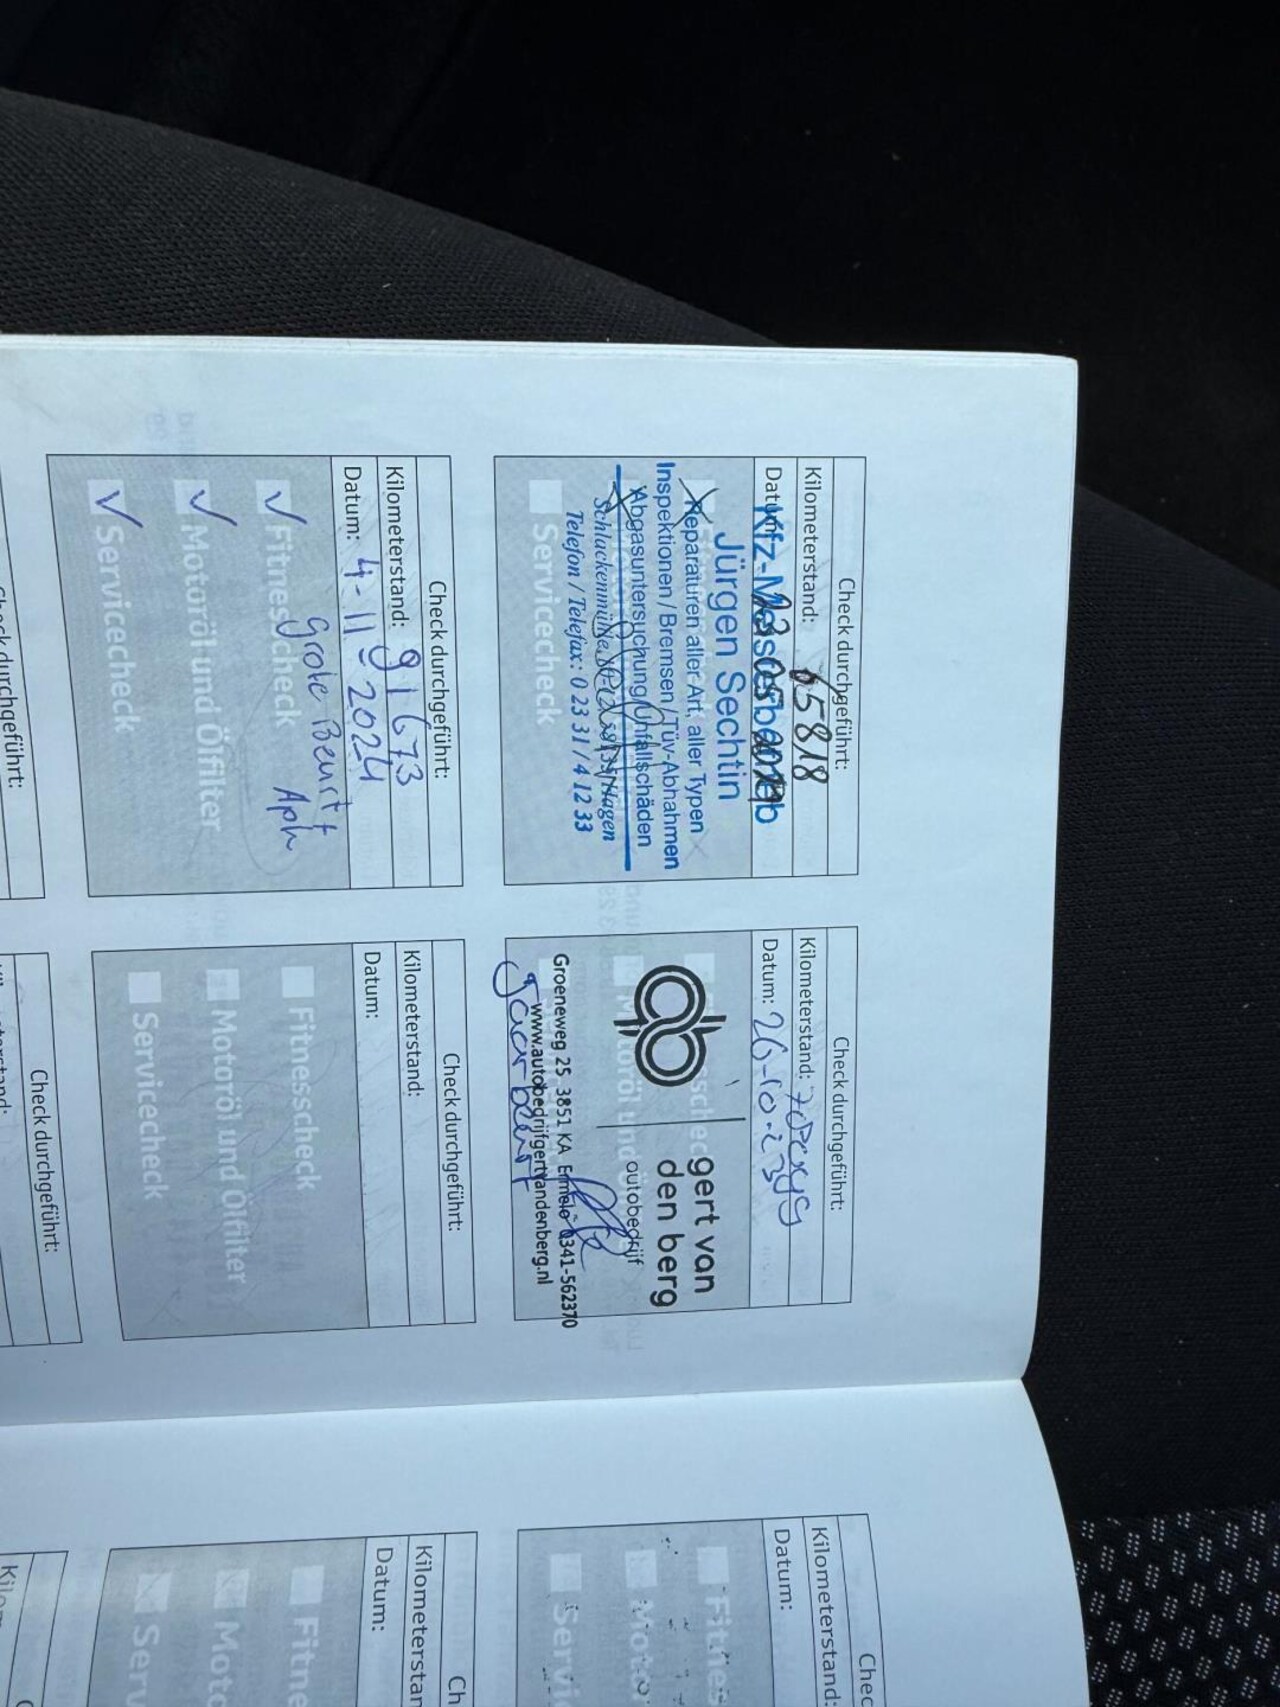 Check durchgeführt:
Kilometerstand: 65818
Datum:
Kfz-Meisterbetrieb
Jürgen Sechtin
Reparaturen aller Art, aller Typen
Inspektionen / Bremsen / Tüv-Abnahmen
Abgasuntersuchung/Unfallschäden
Telefon / Telefax: 0 23 31 / 4 12 33
Servicecheck
Check durchgeführt:
Kilometerstand:
Datum: 26-10-23
gert van
den berg
autobedrijf
Groeneweg 25 3851 KA Ermelo 0341-562370
www.autobedrijfgertvandenberg.nl
Check durchgeführt:
Kilometerstand: 91673
Datum: 4-11-2024
Fitnesscheck
Grote Beurt
Motoröl und Ölfilter
Servicecheck
Check durchgeführt:
Kilometerstand:
Datum:
Fitnesscheck
Motoröl und Ölfilter
Servicecheck
Check durchgeführt:
Check durchgeführt:
Chec
Kilometerstand:
Datum:
Fitnes
Motor
Servi
Ch
Kilometerstan
Datum:
Fitne
Moto
Serv